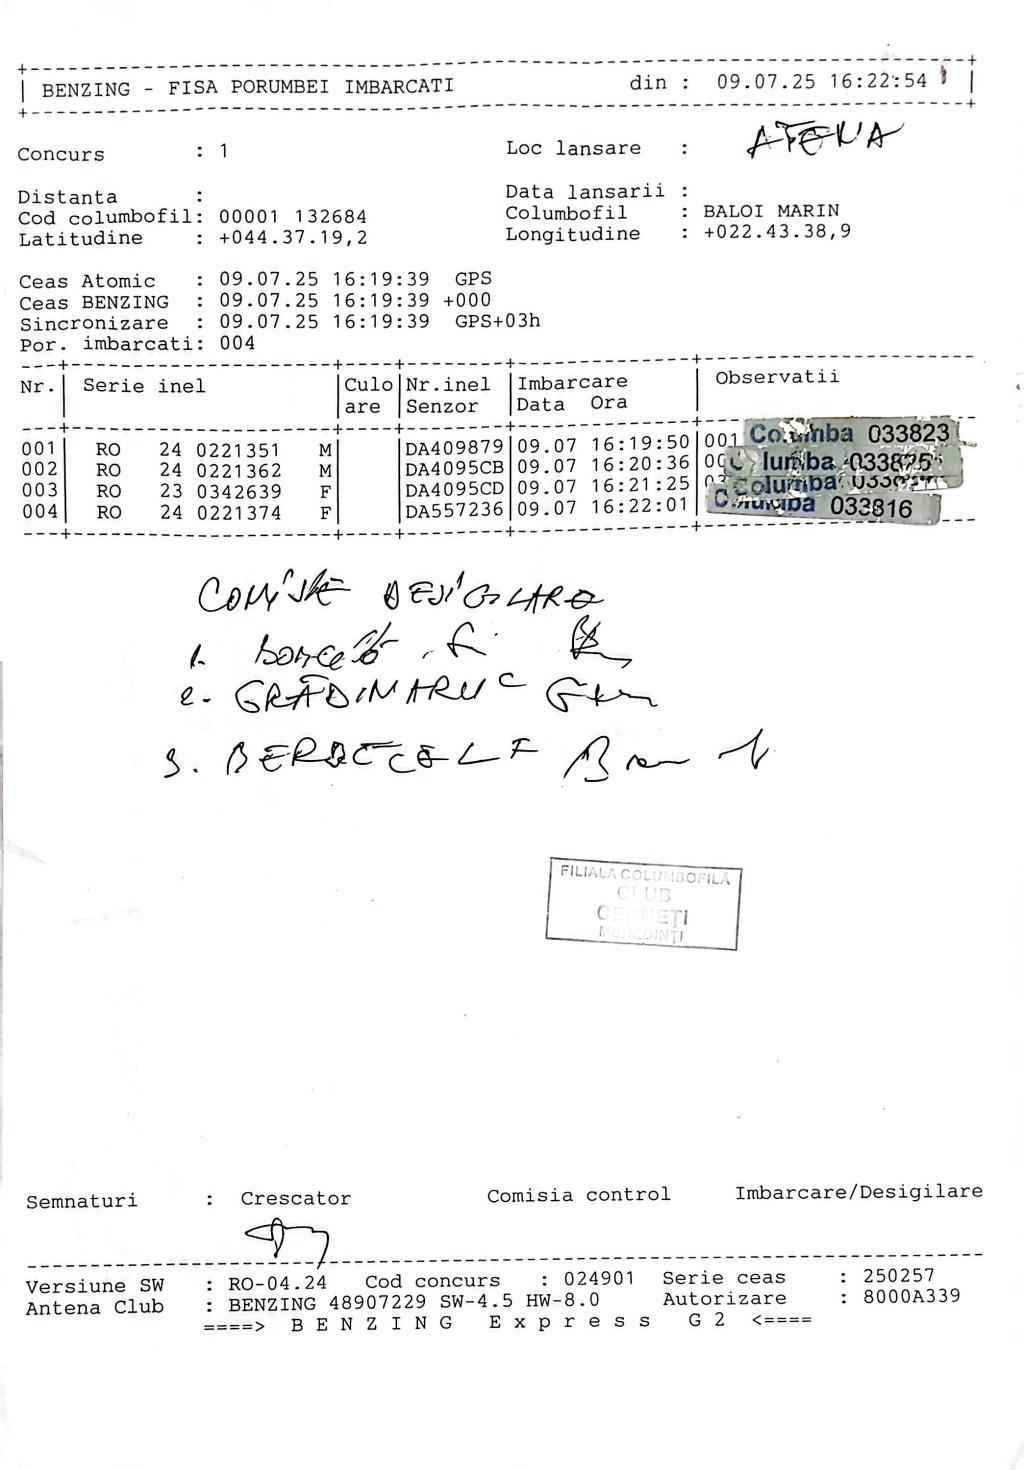 BENZING - FISA PORUMBEI IMBARCATI din : 09.07.25 16:22:54
Concurs : 1 Loc lansare : ATENA
Distanta : Data lansarii :
Cod columbofil: 00001 132684 Columbofil : BALOI MARIN
Latitudine : +044.37.19,2 Longitudine : +022.43.38,9
Ceas Atomic : 09.07.25 16:19:39 GPS
Ceas BENZING : 09.07.25 16:19:39 +000
Sincronizare : 09.07.25 16:19:39 GPS+03h
Por. imbarcati: 004
Nr. Serie inel Culo Nr.inel Imbarcare Observatii
are Senzor Data Ora
001 RO 24 0221351 M DA409879 09.07 16:19:50 001 Columba 033823
002 RO 24 0221362 M DA4095CB 09.07 16:20:36 Columba 033825
003 RO 23 0342639 F DA4095CD 09.07 16:21:25 Columba
004 RO 24 0221374 F DA557236 09.07 16:22:01 Columba 033816
DESIGILARE
1.
2. GRĂDINARU C
3.
FILIALA COLUMBOFILĂ
CLUB
CERNEȚI
MEHEDINȚI
Semnaturi : Crescator Comisia control Imbarcare/Desigilare
Versiune SW : RO-04.24 Cod concurs : 024901 Serie ceas : 250257
Antena Club : BENZING 48907229 SW-4.5 HW-8.0 Autorizare : 8000A339
====> B E N Z I N G E x p r e s s G 2 <====